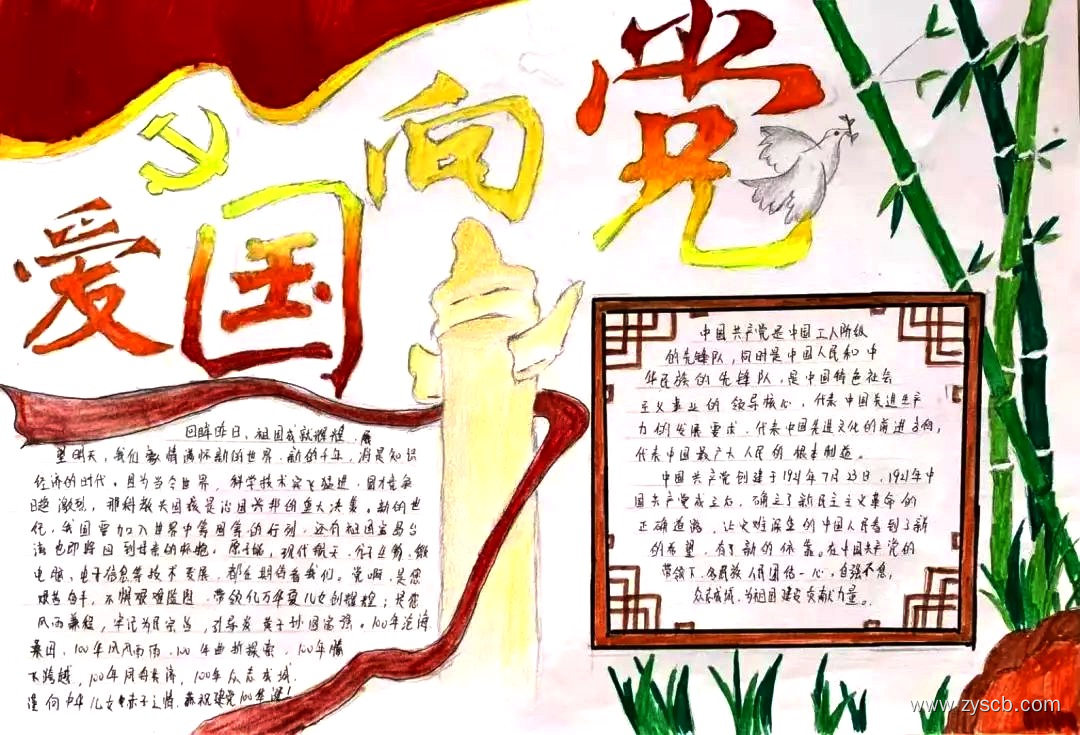 爱国向党
回眸昨日，祖国成就辉煌，展
望明天，我们豪情满怀新的世界，新的千年，将是知识
经济的时代，因为当今世界，科学技术突飞猛进，国力竞争
日趋激烈，那科教兴国成是治国兴邦的重大决策。新的世
纪，我国要加入世界中等国家的行列，还有祖国宝岛台
湾也即将回到母亲的怀抱。原子城，现代航天，微
电脑，电子信息等技术发展，都在期待着我们。党啊，是您
艰苦奋斗，不惧艰难险阻，带领亿万华夏儿女创辉煌；是您
风雨兼程，牢记为民宗旨，引导炎黄子孙国富强。100年沧海
桑田，100年风风雨雨，100年曲折探索，100年
下跨越，100年同舟共济，100年众志成城，
中华儿女赤子之情，恭祝建党100华诞！
中国共产党是中国工人阶级
的先锋队，同时是中国人民和中
华民族的先锋队，是中国特色社会
主义事业的领导核心，代表中国先进生产
力的发展要求，代表中国先进文化的前进方向，
代表中国最广大人民的根本利益。
中国共产党创建于1921年7月23日，1921年中
国共产党成立后，确立了新民主主义革命的
正确道路，让灾难深重的中国人民看到了新
的希望，有了新的依靠。在中国共产党的
带领下，各民族人民团结一心，自强不息，
众志成城，为祖国建设贡献力量。
www.zyscb.com